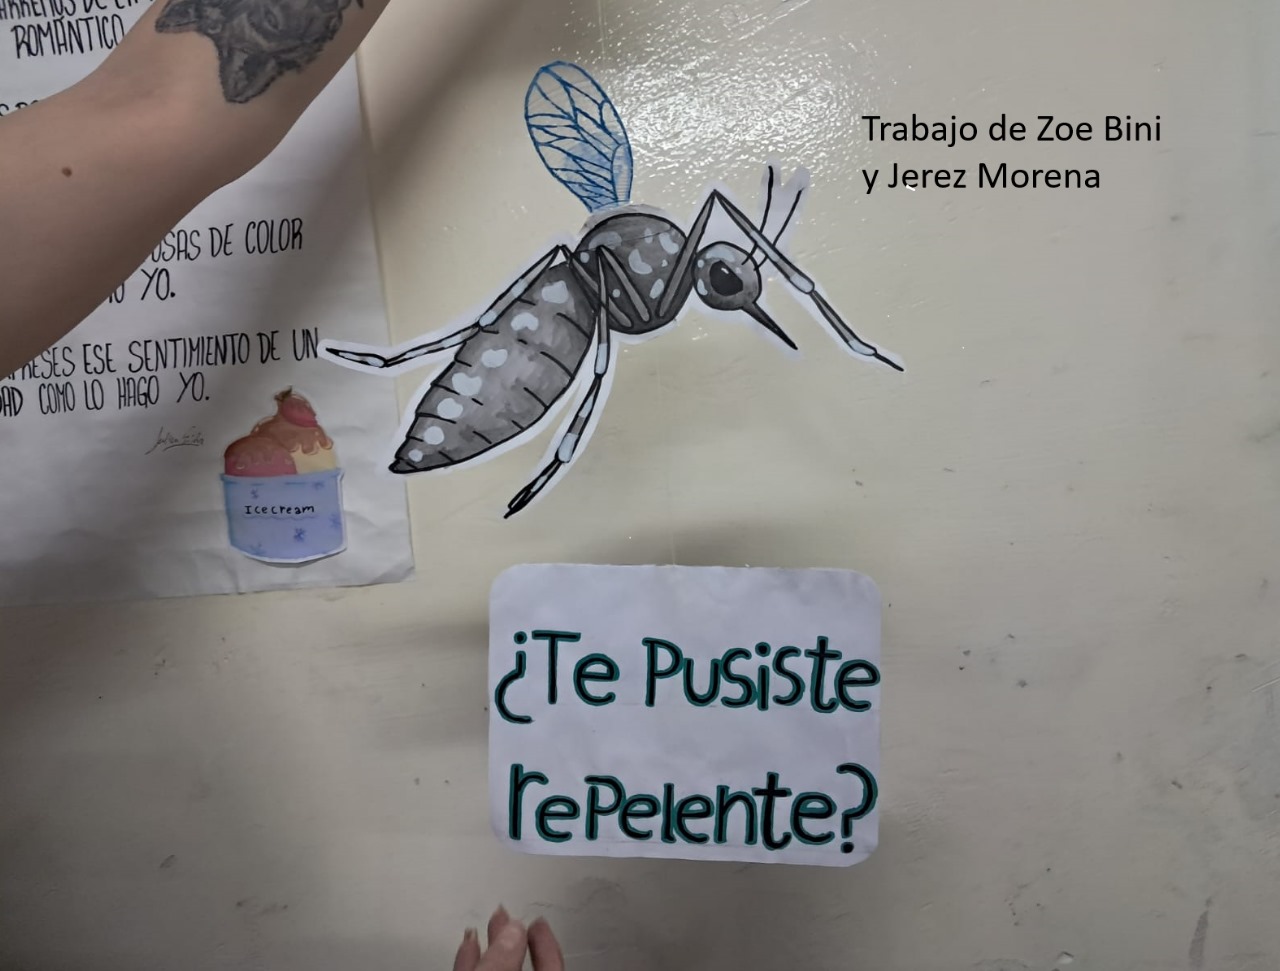 ROMÁNTICO
OSAS DE COLOR
YO.
ESE SENTIMIENTO DE UN
COMO LO HAGO YO.
Icecream
Trabajo de Zoe Bini
y Jerez Morena
¿Te Pusiste
rePelente?